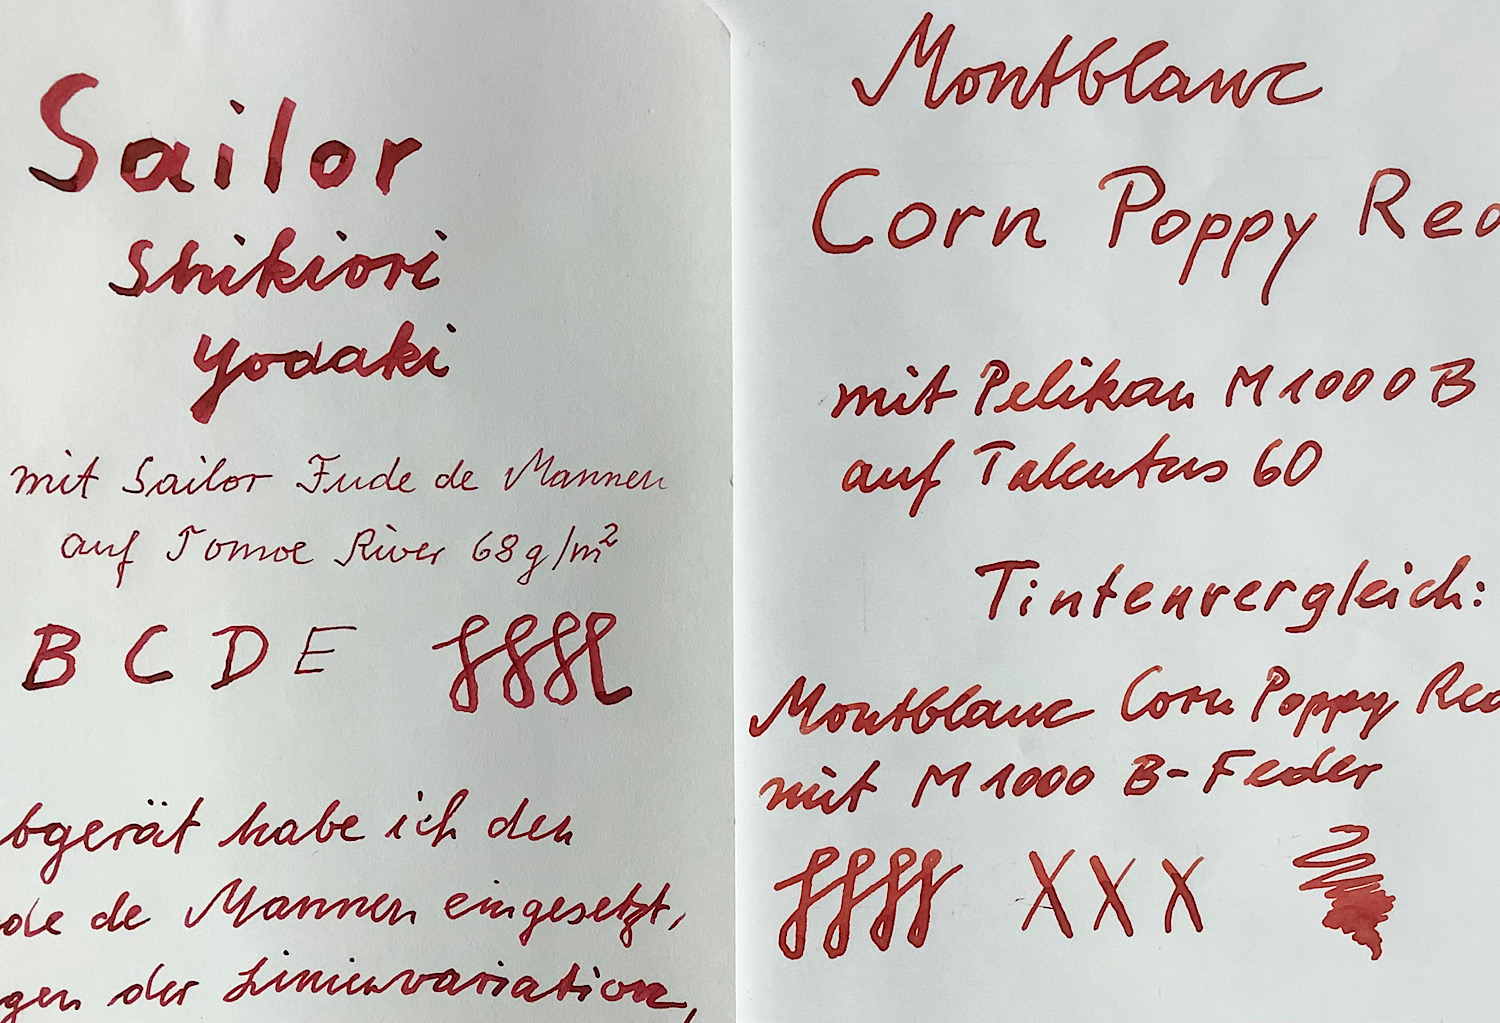 Sailor
Shikiori
Yodaki
mit Sailor Fude de Mannen
auf Tomoe River 68g/m²
B C D E
bgerät habe ich den
de de Mannen eingesetzt,
gen der Linienvariation,
Montblanc
Corn Poppy Red
mit Pelikan M1000 B
auf Talentus 60
Tintenvergleich:
Montblanc Corn Poppy Red
mit M1000 B-Feder
X X X